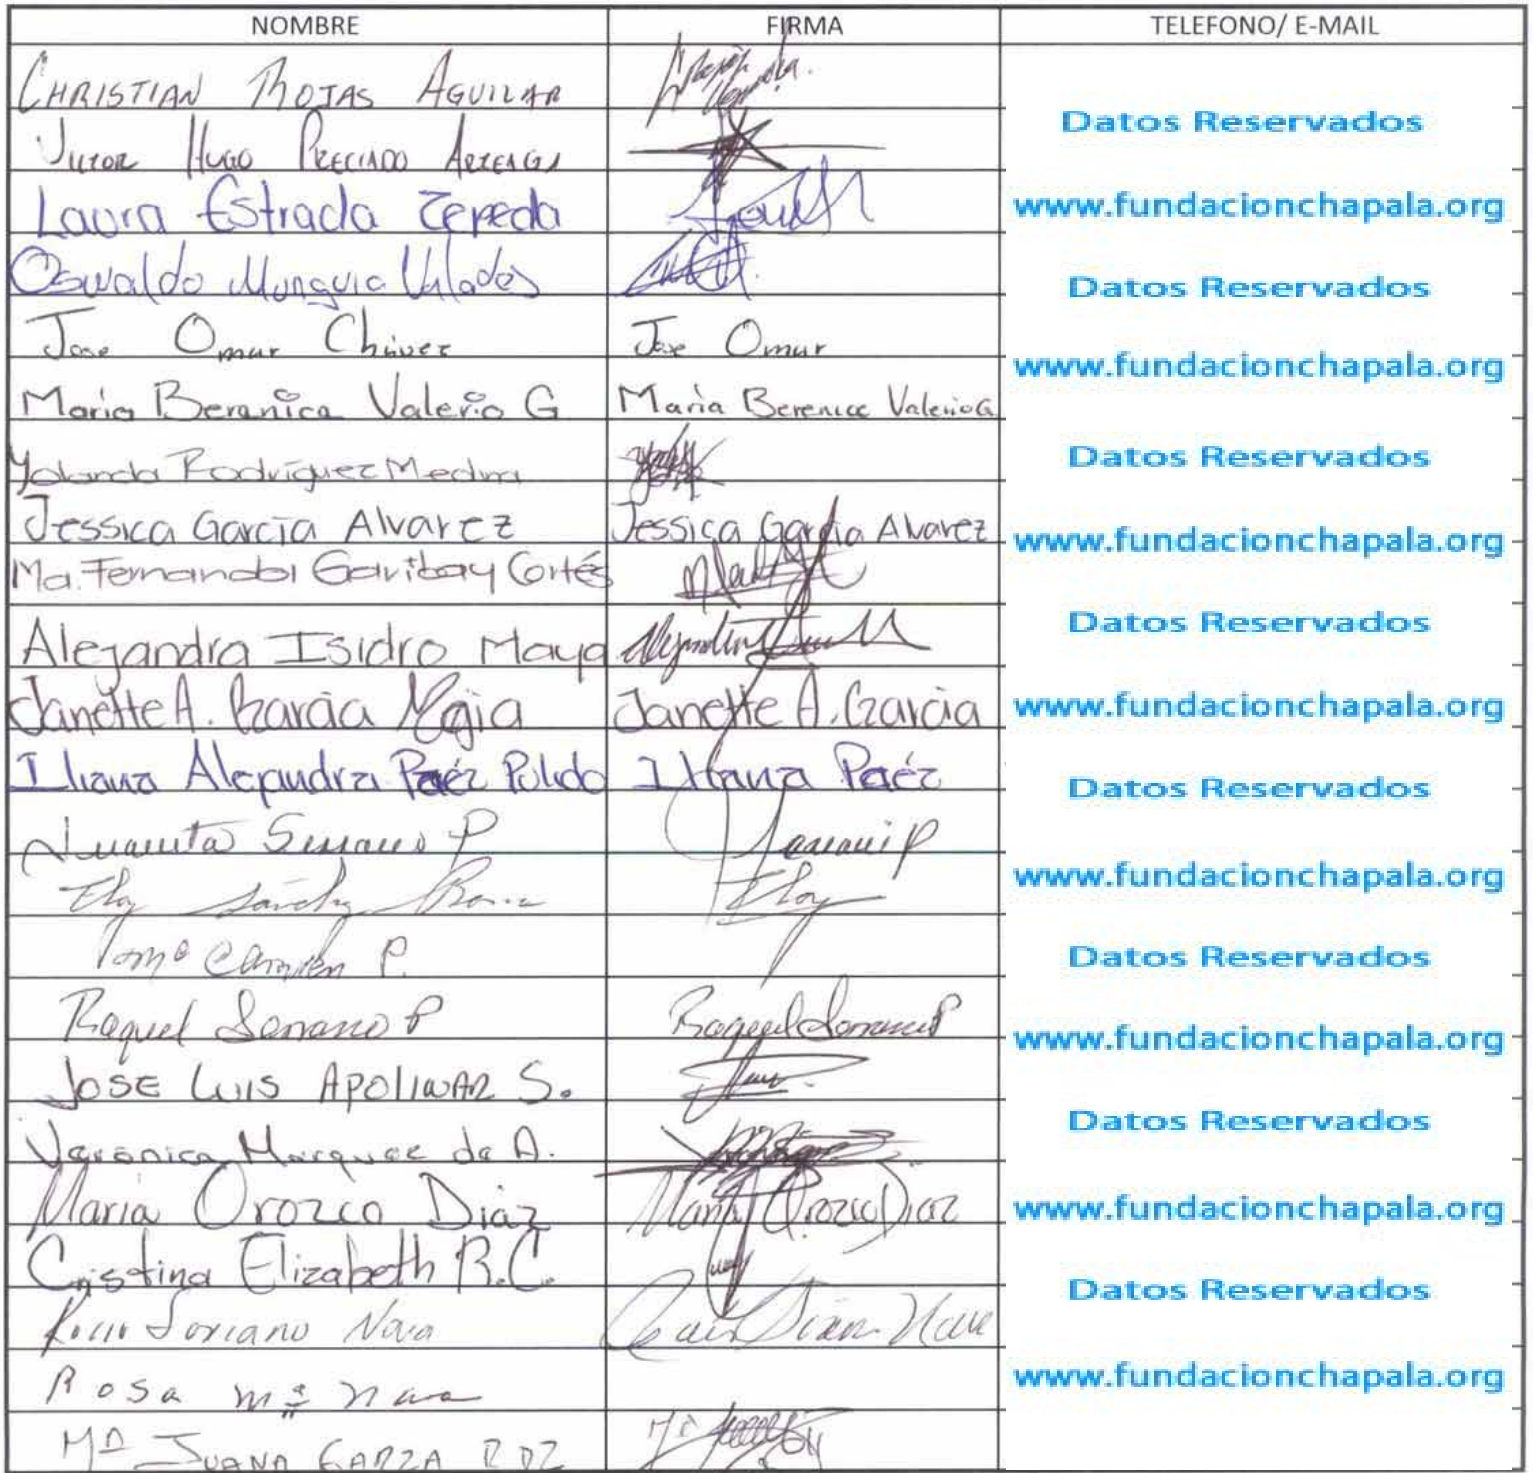 NOMBRE FIRMA TELEFONO/ E-MAIL
CHRISTIAN ROJAS AGUILAR
Datos Reservados
Victor Hugo PRECIADO
Laura Estrada Zepeda
www.fundacionchapala.org
Oswaldo Munguia Valades
Datos Reservados
Jose Omar Chávez Jose Omar
www.fundacionchapala.org
Maria Berenice Valerio G Maria Berenice Valerio G
Yolanda Rodríguez Medina
Datos Reservados
Jessica García Alvarez Jessica García Alvarez
www.fundacionchapala.org
Ma. Fernanda Garibay Cortés
Alejandra Isidro Maya
Datos Reservados
Janette A. Garcia Mejia Janette A. Garcia
www.fundacionchapala.org
Iliana Alejandra Paéz Pulido Iliana Paéz
Datos Reservados
Juanita Serrano P
Eloy Eloy
www.fundacionchapala.org
Carmen P.
Datos Reservados
Raquel Serrano P Raquel Serrano P
www.fundacionchapala.org
JOSE LUIS APOLINAR S.
Veronica Marquez de A.
Datos Reservados
Maria Orozco Diaz Maria Orozco Diaz
www.fundacionchapala.org
Cristina Elizabeth R.C.
Rocio Soriano Nava
Datos Reservados
Rosa Mª Nava
www.fundacionchapala.org
Mª JUANA GARZA RDZ